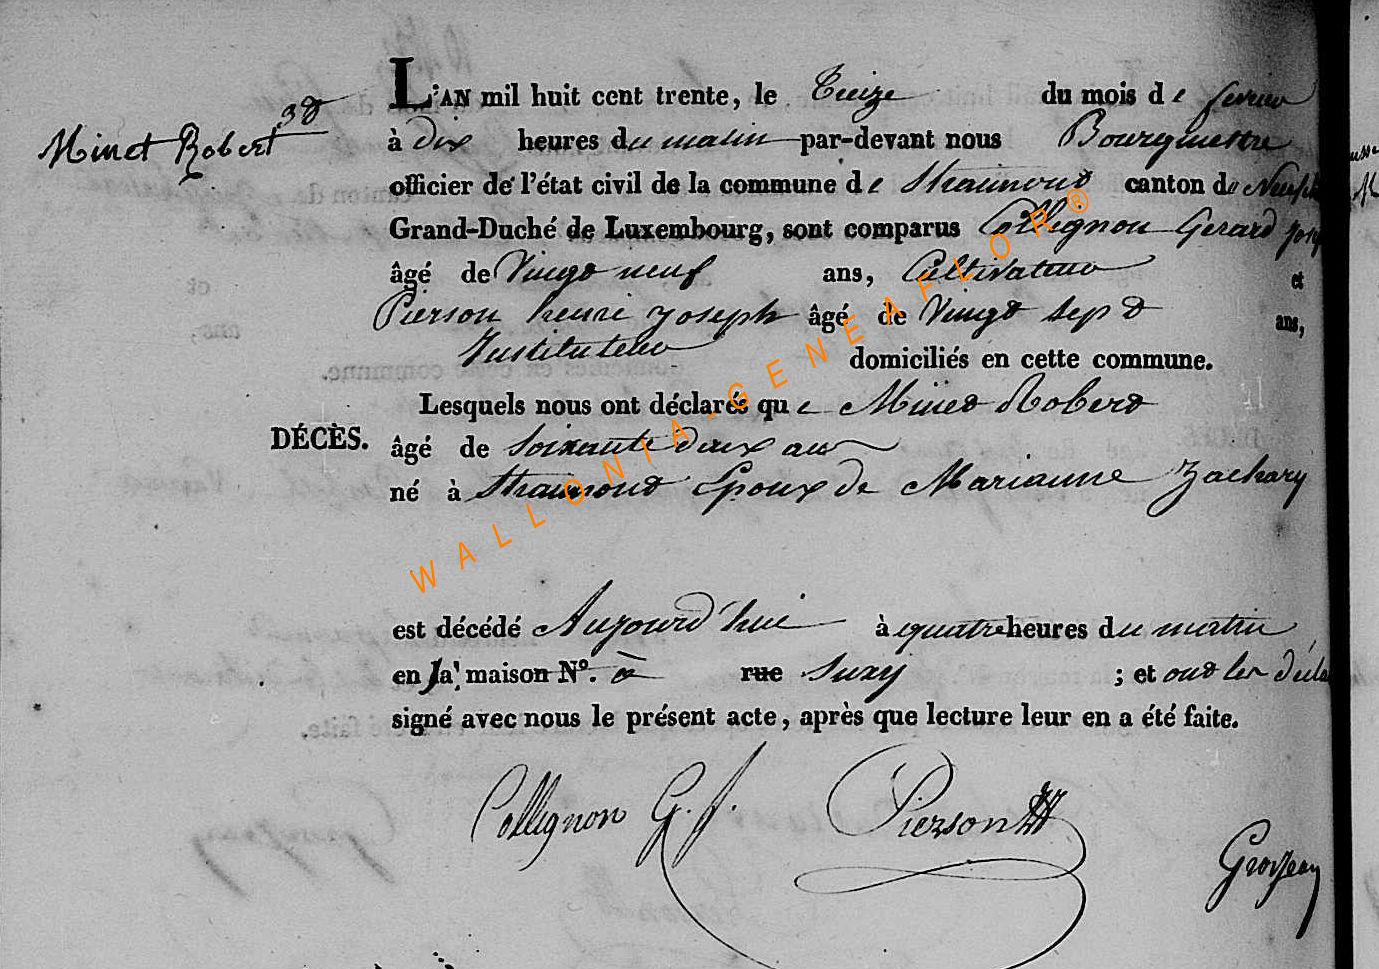 3e
Minet Robert
L'AN mil huit cent trente, le treize du mois de fevrier
à dix heures du matin par-devant nous Bourgmestre
officier de l'état civil de la commune de Straimont canton de
Grand-Duché de Luxembourg, sont comparus Collignon Gerard
âgé de Vingt neuf ans, Cultivateur et
Pierson henri joseph âgé de Vingt sept ans,
Instituteur domiciliés en cette commune.
Lesquels nous ont déclarés que Minet Robert
DÉCÈS.
âgé de soixante deux ans
né à Straimont Epoux de Marianne Zachary
est décédé Aujourd'hui à quatre heures du matin
en sa maison N°. à rue Suxy ; et ont les
signé avec nous le présent acte, après que lecture leur en a été faite.
Collignon G. J. Pierson
Grosjean
WALLONIA-GENEAFLOR®